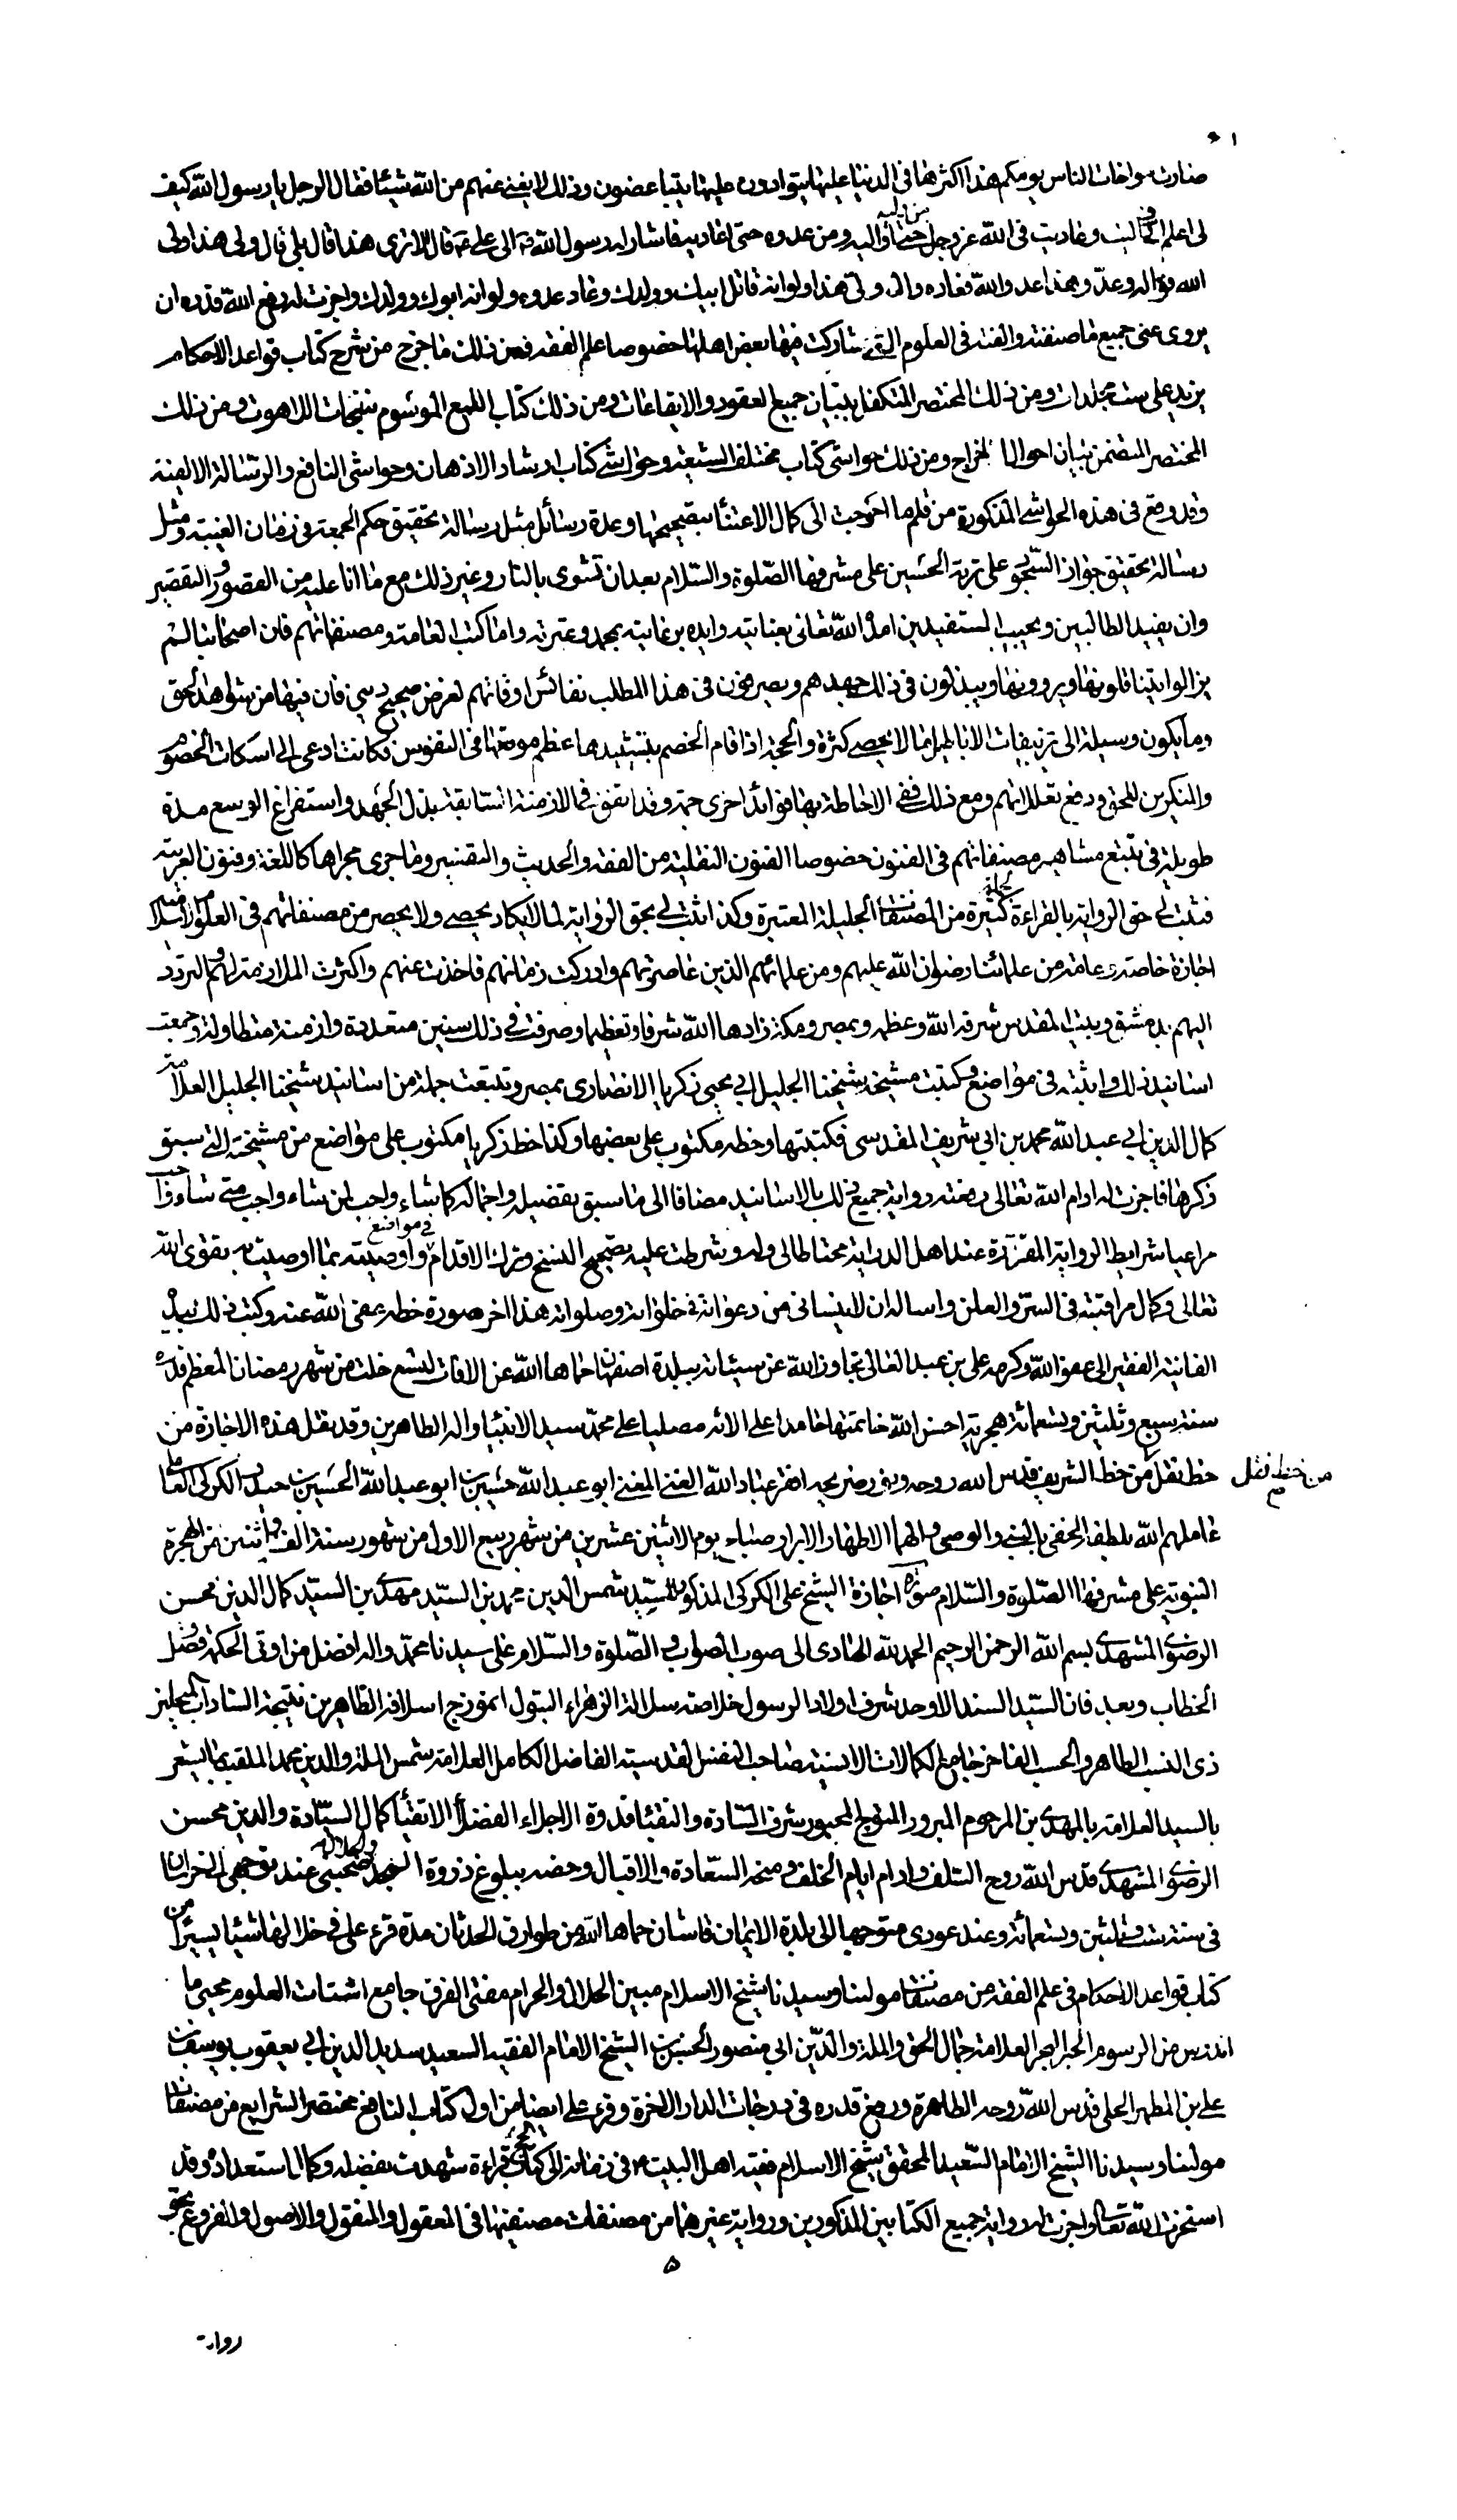 صارت مواخات الناس يومكم هذا اكثرها فى الدنيا عليها يتوادون وعليها يتباغضون وذلك لا يغنى عنهم من الله شيئا فقال الرجل يا رسول الله كيف
لى اعلم انى واليت وعاديت فى الله عز وجل ومن ولى الله حتى اواليه ومن عدوه حتى اعاديه فاشار له رسول الله ص الى على ع قال الا ترى هذا قال بلى قال ولى هذا ولى
الله فواله وعدو هذا عدو الله فعاده وال ولى هذا ولو انه قاتل ابيك وولدك وعاد عدوه ولو انه ابوك وولدك واجزت له رفع الله قدره ان
يروى عنى جميع ما صنفته والفته فى العلوم التى شاركت فيها بعض اهلها خصوصا علم الفقه فمن ذلك ما خرج من شرح كتاب قواعد الاحكام
يزيد على ست مجلدات ومن ذلك المختصر المتكفل ببيان جميع العقود والايقاعات ومن ذلك كتاب اللمع الموسوم بنفحات اللاهوت ومن ذلك
المختصر المتضمن بيان احوال الخراج ومن ذلك حواشى كتاب مختلف الشيعة وحواشى كتاب ارشاد الاذهان وحواشى النافع والرسالة الالفية
وقد وقع فى هذه الحواشى المذكورة من قلم ما احوجت الى كمال الاعتناء بتصحيحها وعدة رسائل مثل رسالة تحقيق حكم الجمعة فى زمان الغيبة ومثل
رسالة تحقيق جواز السجود على تربة الحسين على مشرفها الصلوة والسلام بعد ان تشوى بالنار وغير ذلك مع ما انا عليه من القصور والتقصير
وان يفيد الطالبين ويجيب المستفيدين امده الله تعالى بعنايته وايده برعايته بمحمد وعترته واما كتب العامة ومصنفاتهم فان اصحابنا لم
يزالوا ينقلونها ويروونها ويبذلون فى ذلك جهدهم ويصرفون فى هذا المطلب نفائس اوقاتهم لغرض صحيح دينى فان فيها من شواهد الحق
وما يكون وسيلة الى تزييفات الاباطيل ما لا يحصى كثرة والحجة اذا قام الخصم بتشييدها عظم موقعها فى النفوس فكانت ادعى الى اسكات الخصوم
والمنكرين للحق ودفع تعللاتهم ومع ذلك ففى الاحاطة بها فوائد اخرى جمة وقد اتفق فى الازمنة السابقة بذل الجهد واستفراغ الوسع مدة
طويلة فى تتبع مشاهير مصنفاتهم فى الفنون خصوصا الفنون النقلية من الفقه والحديث والتفسير وما جرى مجراها كاللغة وفنون العربية
فثبت لى حق الرواية بالقراءة لجملة كثيرة من المصنفات الجليلة المعتبرة وكذا ثبت لى حق الرواية لما لا يكاد يحصى ولا يحصر من مصنفاتهم فى العلوم الاسلامية
اجازة خاصة وعامة من علمائنا رضوان الله عليهم ومن علمائهم الذين عاصرتهم وادركت زمانهم فاخذت عنهم واكثرت الملازمة لهم والتردد
اليهم بدمشق وبيت المقدس شرفه الله وعظمه وبمصر ومكة زادها الله شرفا وتعظيما وصرفت فى ذلك سنين متعددة وازمنة متطاولة وجمعت
اسانيد ذلك واثبته فى مواضع وكتبت مشيخة شيخنا الجليل ابى يحيى زكريا الانصارى بمصر وتتبعت جملة من اسانيد شيخنا الجليل العلامة
كمال الدين ابى عبد الله محمد بن ابى شريف المقدسى فكتبتها وخطه مكتوب على بعضها وكذا خط زكريا مكتوب على مواضع من مشيخته التى سبق
ذكرها فاجزت له ادام الله تعالى رفعته رواية جميع ذلك بالاسانيد مضافا الى ما سبق تفصيله واجماله كما شاء واحب لمن شاء واحب متى شاء واحب
مراعيا شرايط الرواية المقررة عند اهل الدراية محتاطا لى وله وشرطت عليه تصحيح النسخ وترك الاقدام فى مواضع واوصيته بما اوصيت به بتقوى الله
تعالى وكمال مراقبته فى السر والعلن واساله ان لا ينسانى من دعواته فى خلواته وصلواته هذا اخر صورة خطه عفى الله عنه وكتب ذلك بيده
الفانية الفقير الى عفو الله وكرمه على بن عبد العالى تجاوز الله عن سيئاته ببلدة اصفهان حماها الله عن الافات لتسع خلت من شهر رمضان المعظم قدره
سنة سبع وثلثين وتسعمائة هجرية احسن الله خاتمتها حامدا على الائه مصليا على محمد سيد الانبياء واله الطاهرين وقد نقل هذه الاجازة من
من خط نقل م
خط نقل من خط الشريف قدس الله روحه ونور ضريحه افقر عباد الله الغنى المغنى ابو عبد الله حسين بن ابو عبد الله الحسين بن حيدر الكركى العاملى
عاملهم الله بلطفه الخفى بالنبى والوصى والهما الاطهار الابرار صباح يوم الاثنين عشرين من شهر ربيع الاول من شهور سنة الف واثنين من الهجرة
النبوية على مشرفها الصلوة والسلام صورة اجازة الشيخ على الكركى المذكور للسيد شمس الدين محمد بن السيد مهدى بن السيد كمال الدين محسن
الرضوى المشهدى بسم الله الرحمن الرحيم الحمد لله الهادى الى صوب الصواب والصلوة والسلام على سيدنا محمد واله افضل من اوتى الحكمة وفصل
الخطاب وبعد فان السيد السند الاوحد شرف اولاد الرسول خلاصة سلالة الزهراء البتول انموذج اسلافه الطاهرين نتيجة السادات المبجلين
ذى النسب الطاهر والحسب الفاخر جامع الكمالات الانسية صاحب النفس القدسية الفاضل الكامل العلامة شمس الملة والدين محمد الملقب
بالسيد العلامة بالمهدى بن المرحوم المبرور المتوج المحبور شرف السادة والنقباء قدوة الاجلاء الفضلاء الاتقياء كمال السيادة والدين محسن
الرضوى المشهدى قدس الله روح السلف وادام ايام الخلف ومنحه السعادة والاقبال وخصه ببلوغ ذروة المجد والجلالة صحبنى عند توجهى الى خراسان
فى سنة ست وثلثين وتسعمائة وعند عودى متوجها الى بلدة الايمان قاشان حماها الله من طوارق الحدثان مدة قرء على فى خلالها شيئا يسيرا من
كتاب قواعد الاحكام فى علم الفقه من مصنفات مولينا وسيدنا شيخ الاسلام مبين الحلال والحرام مفتى الفرق جامع اشتات العلوم محيى ما
اندرس من الرسوم الحبر البحر العلامة جمال الحق والملة والدين ابى منصور الحسن بن الشيخ الامام الفقيه السعيد سديد الدين ابى يعقوب يوسف بن
على بن المطهر الحلى قدس الله روحه الطاهرة ورفع قدره فى درجات الدار الاخرة وقرء على ايضا من اول كتاب النافع مختصر الشرايع من مصنفات
مولينا وسيدنا الشيخ الامام السعيد المحقق شيخ الاسلام فقيه اهل البيت ع فى زمانه الى كتاب الحج قراءة شهدت بفضله وكمال استعداده وقد
استخرت الله تعالى واجزت له رواية جميع الكتابين المذكورين ورواية غيرهما من مصنفات مصنفيهما فى المعقول والمنقول والاصول والفروع بحق
روايت